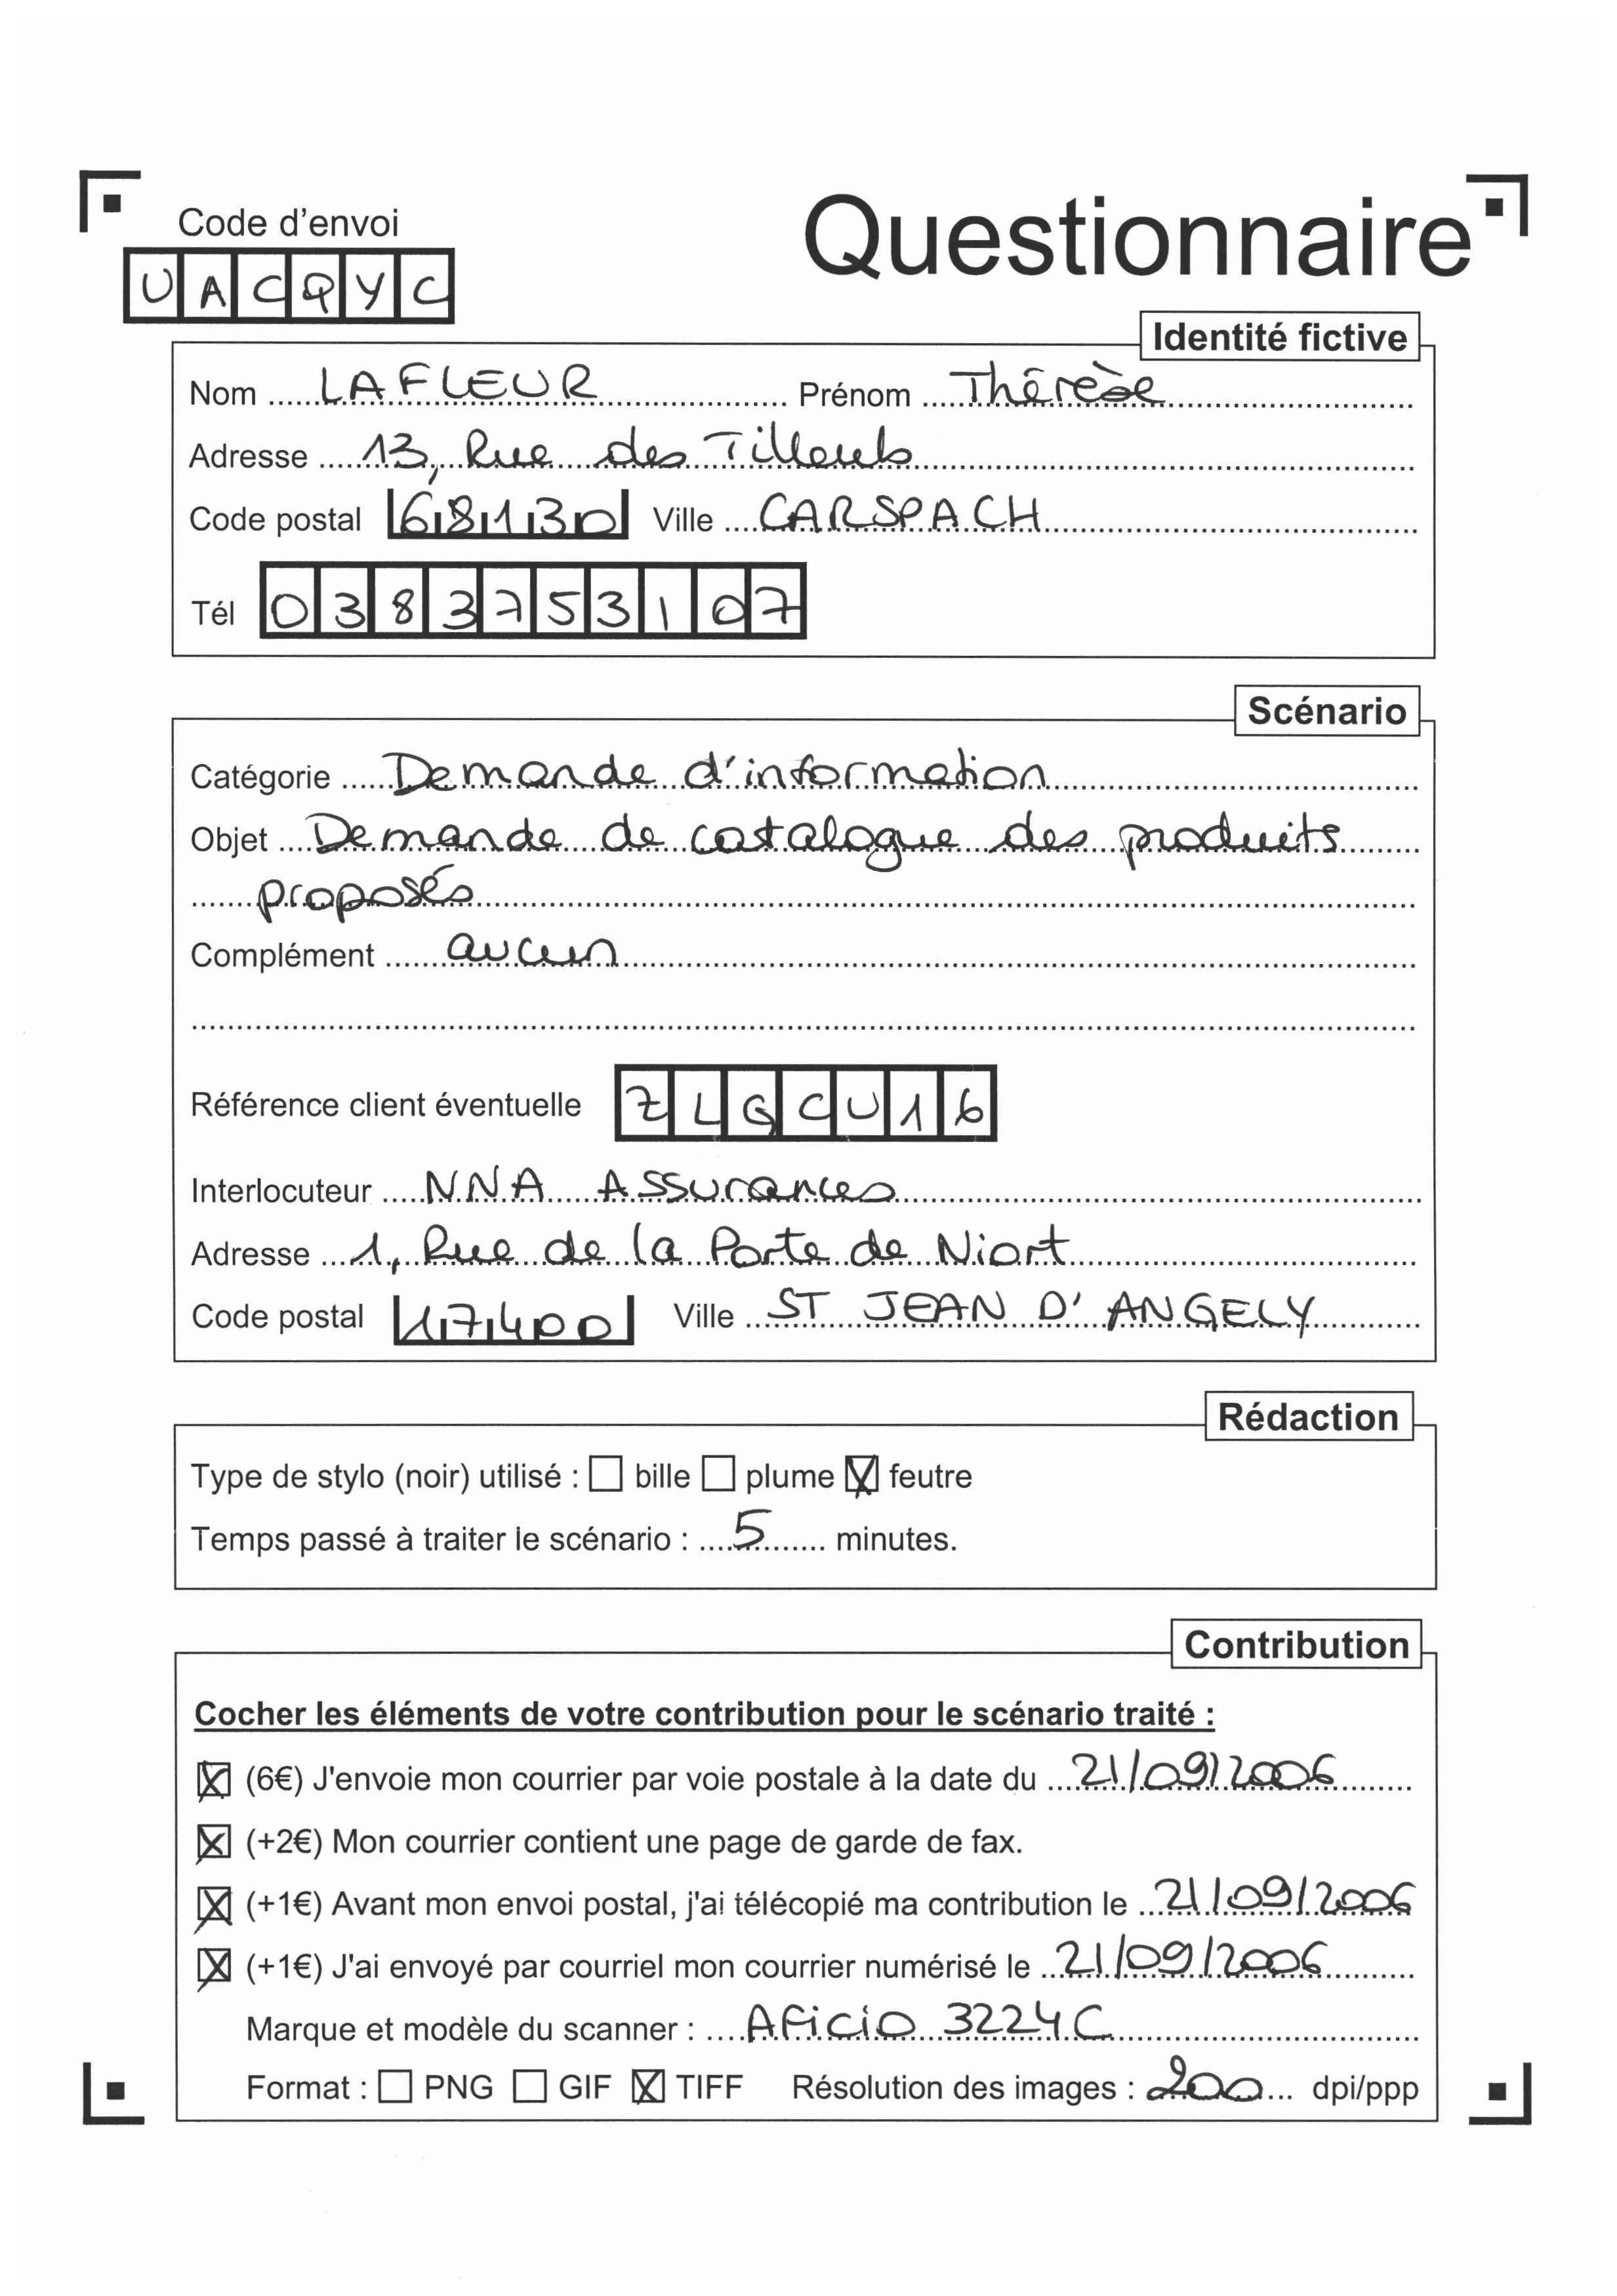 Code d'envoi
Questionnaire
UACQYC
Identité fictive
Nom LAFLEUR Prénom Thérèse
Adresse 13, Rue des Tilleuls
Code postal 68130 Ville CARSPACH
Tél 0383753107
Scénario
Catégorie Demande d'information
Objet Demande de catalogue des produits
proposés
Complément aucun
Référence client éventuelle ZLGCU16
Interlocuteur NNA Assurances
Adresse 1, Rue de la Porte de Niort
Code postal 17400 Ville ST JEAN D'ANGELY
Rédaction
Type de stylo (noir) utilisé : ☐ bille ☐ plume ☒ feutre
Temps passé à traiter le scénario : 5 minutes.
Contribution
Cocher les éléments de votre contribution pour le scénario traité :
☒ (6€) J'envoie mon courrier par voie postale à la date du 21/09/2006
☒ (+2€) Mon courrier contient une page de garde de fax.
☒ (+1€) Avant mon envoi postal, j'ai télécopié ma contribution le 21/09/2006
☒ (+1€) J'ai envoyé par courriel mon courrier numérisé le 21/09/2006
Marque et modèle du scanner : Aficio 3224C
Format : ☐ PNG ☐ GIF ☒ TIFF Résolution des images : 200 dpi/ppp